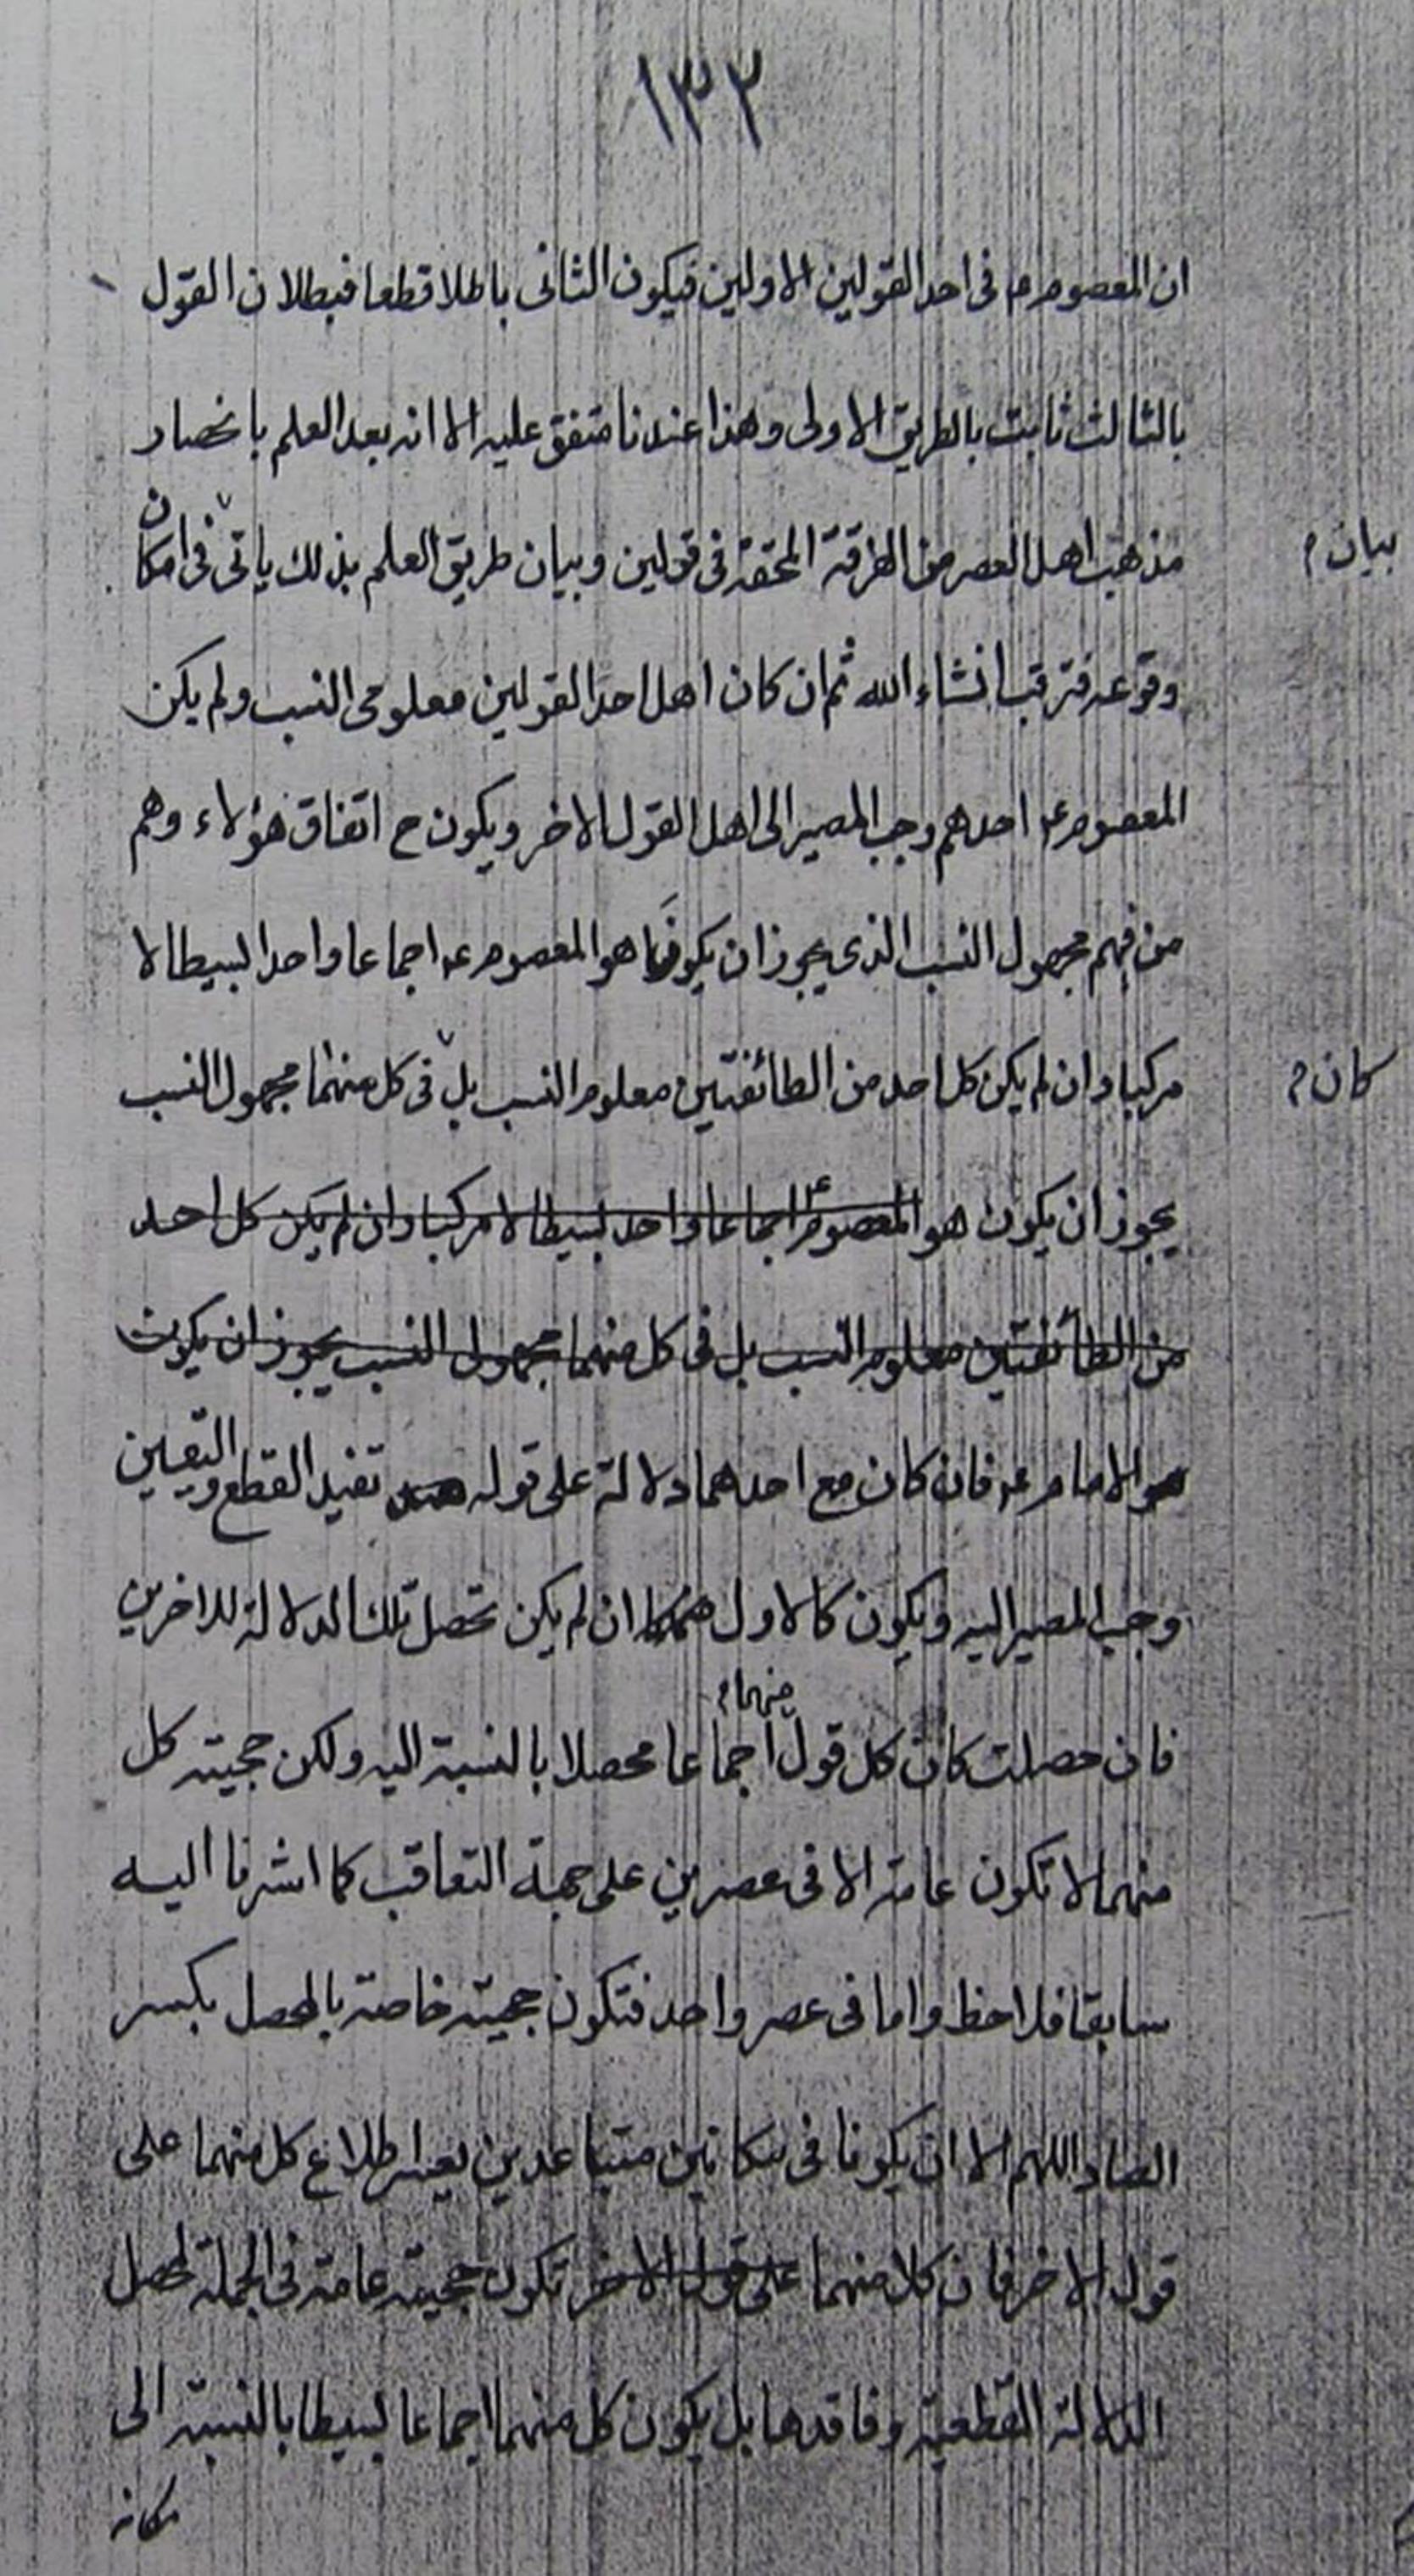 ١٣٣
ان المعصوم ع فى احد القولين الاولين فيكون الثانى باطلا قطعا فبطلان القول
بالثالث ثابت بالطريق الاولى وهذا عندنا متفق عليه الا انه بعد العلم بانحصار
مذهب اهل العصر من الفرقة المحقة فى قولين وبيان طريق العلم بذلك ياتى فى امكان
بيان م
وقوعه فترقب انشاء الله ثم ان كان اهل احد القولين معلومى النسب ولم يكن
المعصوم ع احدهم وجب المصير الى اهل القول الاخر ويكون ح اتفاق هؤلاء وهم
من فيهم مجهول النسب الذى يجوز ان يكون هو المعصوم ع اجماعا واحدا بسيطا لا
مركبا وان لم يكن كل احد من الطائفتين معلوم النسب بل فى كل منهما مجهول النسب
كان م
يجوز ان يكون هو المعصوم ع اجماعا واحد بسيطا لا مركبا وان لم يكن كل احد
من الطائفتين معلوم النسب بل فى كل منهما مجهول النسب يجوز ان يكون
هو الامام ع فان كان مع احدهما دلالة على قوله تفيد القطع واليقين
وجب المصير اليه ويكون كالاول ان لم يكن تحصل تلك الدلالة للاخرين
فان حصلت كان كل قول منهما م اجماعا محصلا بالنسبة اليه ولكن حجيته كل
منهما لا تكون عامة الا فى عصرين على جهة التعاقب كما اشرنا اليه
سابقا فلاحظ واما فى عصر واحد فتكون حجيته خاصة بالمحصل بكسر
الصاد اللهم الا ان يكونا فى مكانين متباعدين يعسر اطلاع كل منهما على
قول الاخر فان كلا منهما على قول الاخر تكون حجيته عامة فى الجملة لمحصل
الدلالة القطعية وفاقدها بل يكون كل منهما اجماعا بسيطا بالنسبة الى
مكانه